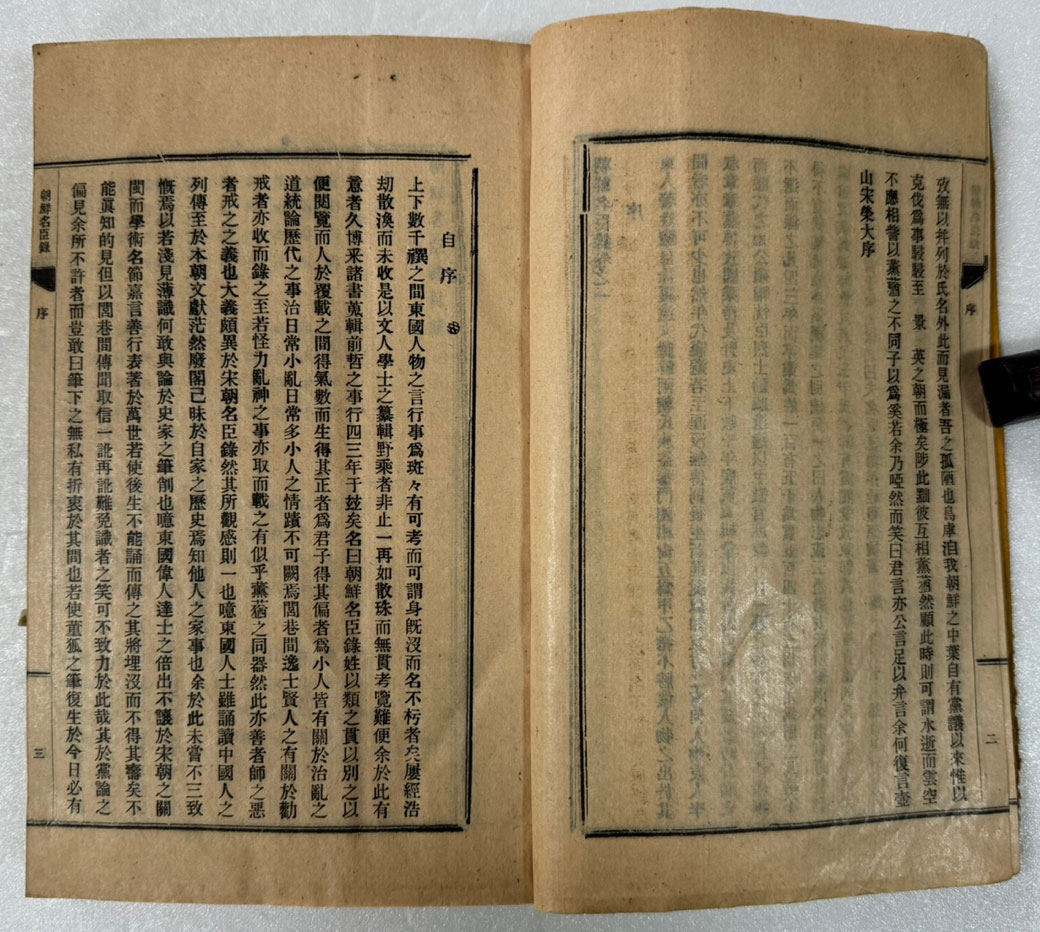 序
二
攷無以并列於氏名外此而見漏者吾之孤陋也烏虖洎我朝鮮之中葉自有黨議以來惟以
克伐爲事駸駸至 景 英之朝而極矣陟此黜彼互相薰蕕然顧此時則可謂水逝而雲空
不應相訾以薰蕕之不同子以爲奚若余乃啞然而笑曰君言亦公言足以弁言余何復言壺
山宋榮大序
自序
上下數千禩之間東國人物之言行事爲斑々有可考而可謂身旣沒而名不朽者矣屢經浩
刧散渙而未收是以文人學士之纂輯野乘者非止一再如散珠而無貫考覽難便余於此有
意者久博采諸書蒐輯前哲之事行四三年于玆矣名曰朝鮮名臣錄姓以類之貫以別之以
便閱覽而人於覆載之間得氣數而生得其正者爲君子得其偏者爲小人皆有關於治亂之
道統論歷代之事治日常小亂日常多小人之情蹟不可闕焉閭巷間逸士賢人之有關於勸
戒者亦收而錄之至若怪力亂神之事亦取而載之有似乎薰蕕之同器然此亦善者師之惡
者戒之之義也大義頗異於宋朝名臣錄然其所觀感則一也噫東國人士雖誦讀中國人之
列傳至於本朝文獻茫然廢閣己昧於自家之歷史焉知他人之家事也余於此未嘗不三致
慨焉以若淺見薄識何敢與論於史家之筆削也噫東國偉人達士之倍出不讓於宋朝之關
閩而學術名節嘉言善行表著於萬世若使後生不能誦而傳之其將埋沒而不得其壽矣不
能眞知的見但以閭巷間傳聞取信一訛再訛難免識者之笑可不致力於此哉其於黨論之
偏見余所不許者而豈敢曰筆下之無私有折衷於其間也若使董狐之筆復生於今日必有
朝鮮名臣錄
序
三